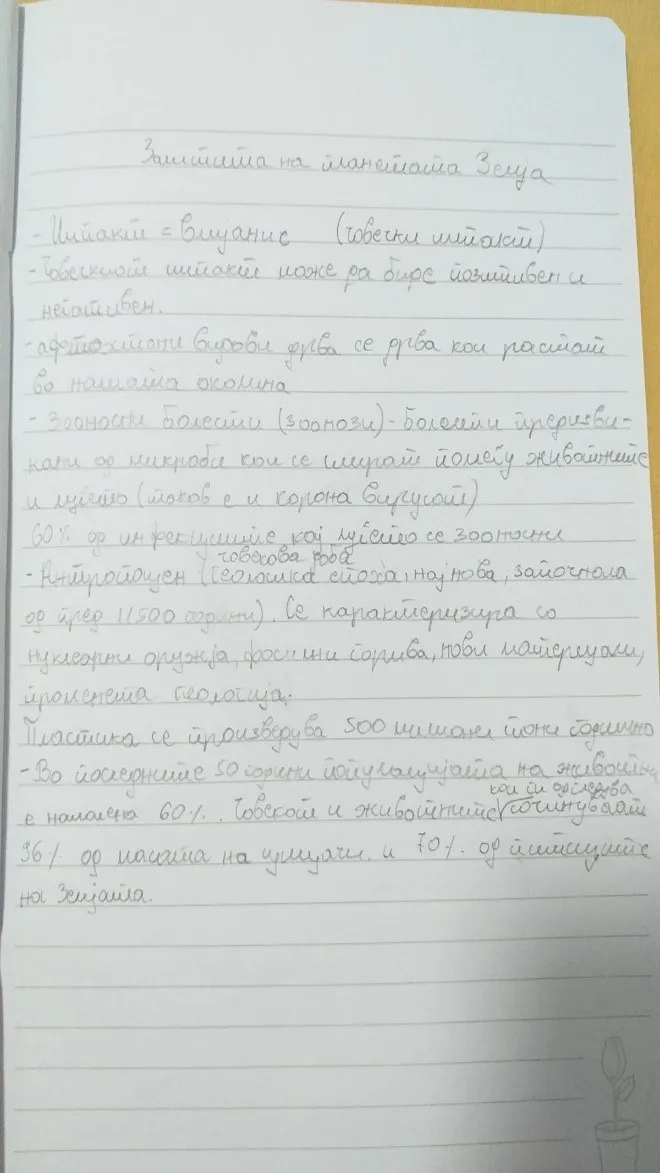 Заштита на планетата Земја
- Импакт = влијание (човечки импакт)
- Човечкиот импакт може да биде позитивен и
негативен.
- афтохтони видови дрва се дрва кои растат
во нашата околина
- Зооносни болести (зоонози) - Болести предизви-
кани од микроби кои се шират помеѓу животните
и луѓето (таков е и корона вирусот)
60% од инфекциите кај луѓето се зооносни
човекова доба
- Антропоцен (геолошка епоха, најнова, започнала
од пред 11500 години). Се карактеризира со
нуклеарни оружја, фосилни горива, нови материјали,
променета геологија.
Пластика се произведува 500 милиони тони годишно
- Во последните 50 години популацијата на животни
кои ги одгледува
е намалена 60%. Човекот и животните сочинуваат
96% од масата на цицачи и 70% од птиците
на Земјата.